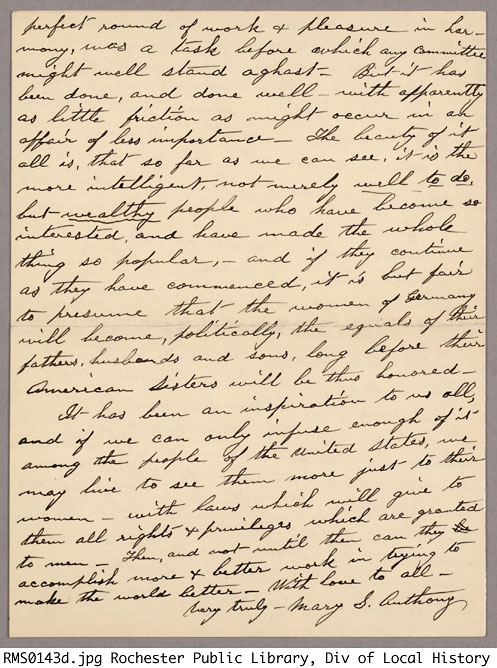 perfect round of work & pleasure in har-
mony, was a task before which any committee
might well stand aghast - But it has
been done, and done well - with apparently
as little friction as might occur in an
affair of less importance - The beauty of it
all is, that so far as we can see, it is the
more intelligent, not merely well to do,
but wealthy people who have become so
interested, and have made the whole
thing so popular, - and if they continue
as they have commenced, it is but fair
to presume that the women of Germany
will become, politically, the equals of their
fathers, husbands and sons, long before their
American Sisters will be thus honored -
It has been an inspiration to us all,
and if we can only infuse enough of it
among the people of the United States, we
may live to see them more just to their
women - with laws which will give to
them all rights & privileges which are granted
to men - Then, and not until then can they
accomplish more & better work in trying to
make the world better - With love to all -
Very truly - Mary S. Anthony
RMS0143d.jpg Rochester Public Library, Div of Local History